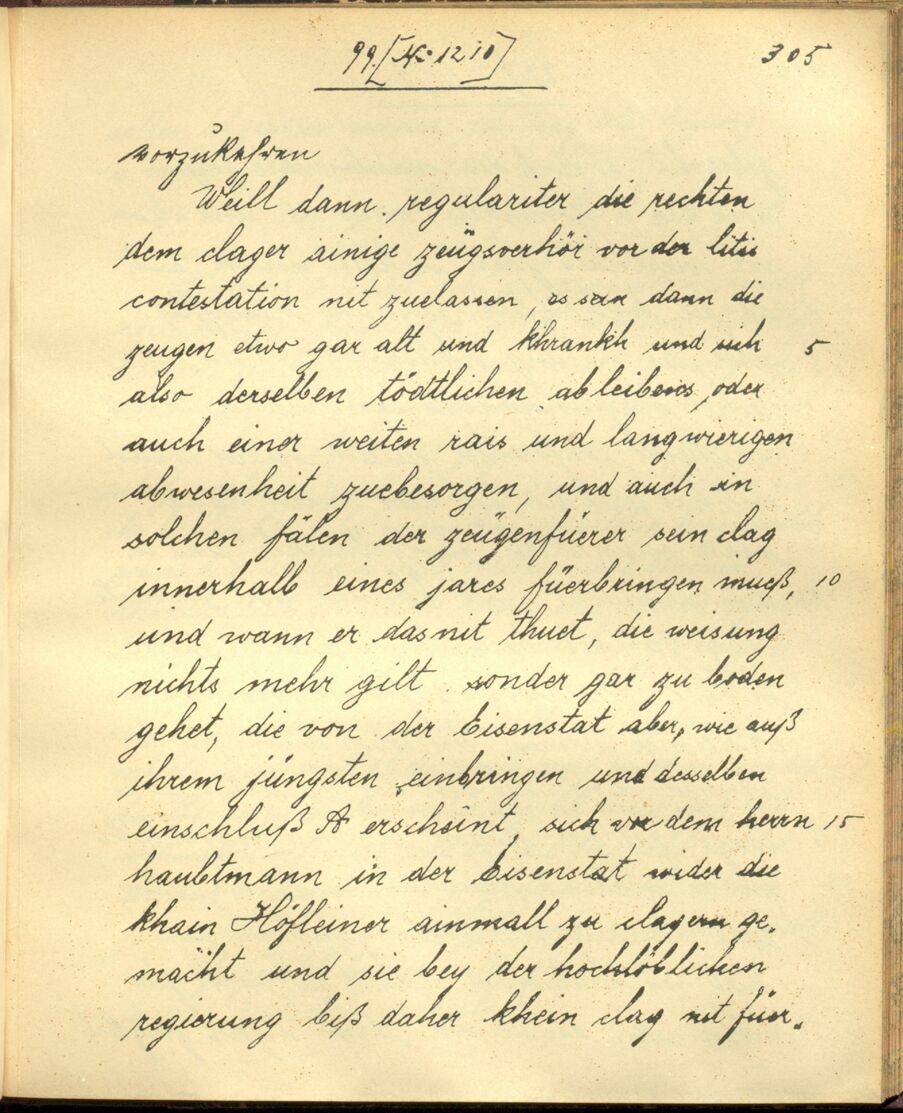 99. [N: 12 10] 305
vorzukehren
Weill dann regulariter die rechten
dem clager ainige zeügsverhör vor der litis
contestation nit zuelassen, es sein dann die
zeugen etwo gar alt und khrankh und sich 5
also derselben tödtlichen ableibens, oder
auch einer weiten rais und langwierigen
abwesenheit zuebesorgen, und auch in
solchen fälen der zeügenfüerer sein clag
innerhalb eines jares füerbringen mueß, 10
und wann er das nit thuet, die weisung
nichts mehr gilt sonder gar zu boden
gehet, die von der Eisenstat aber, wie auß
ihrem jüngsten einbringen und desselben
einschluß A erscheint, sich vor dem herrn 15
haubtmann in der Eisenstat wider die
khain Höfleiner ainmall zu clagern ge-
macht und sie bey der hochlöblichen
regierung biß daher khein clag nit füer-